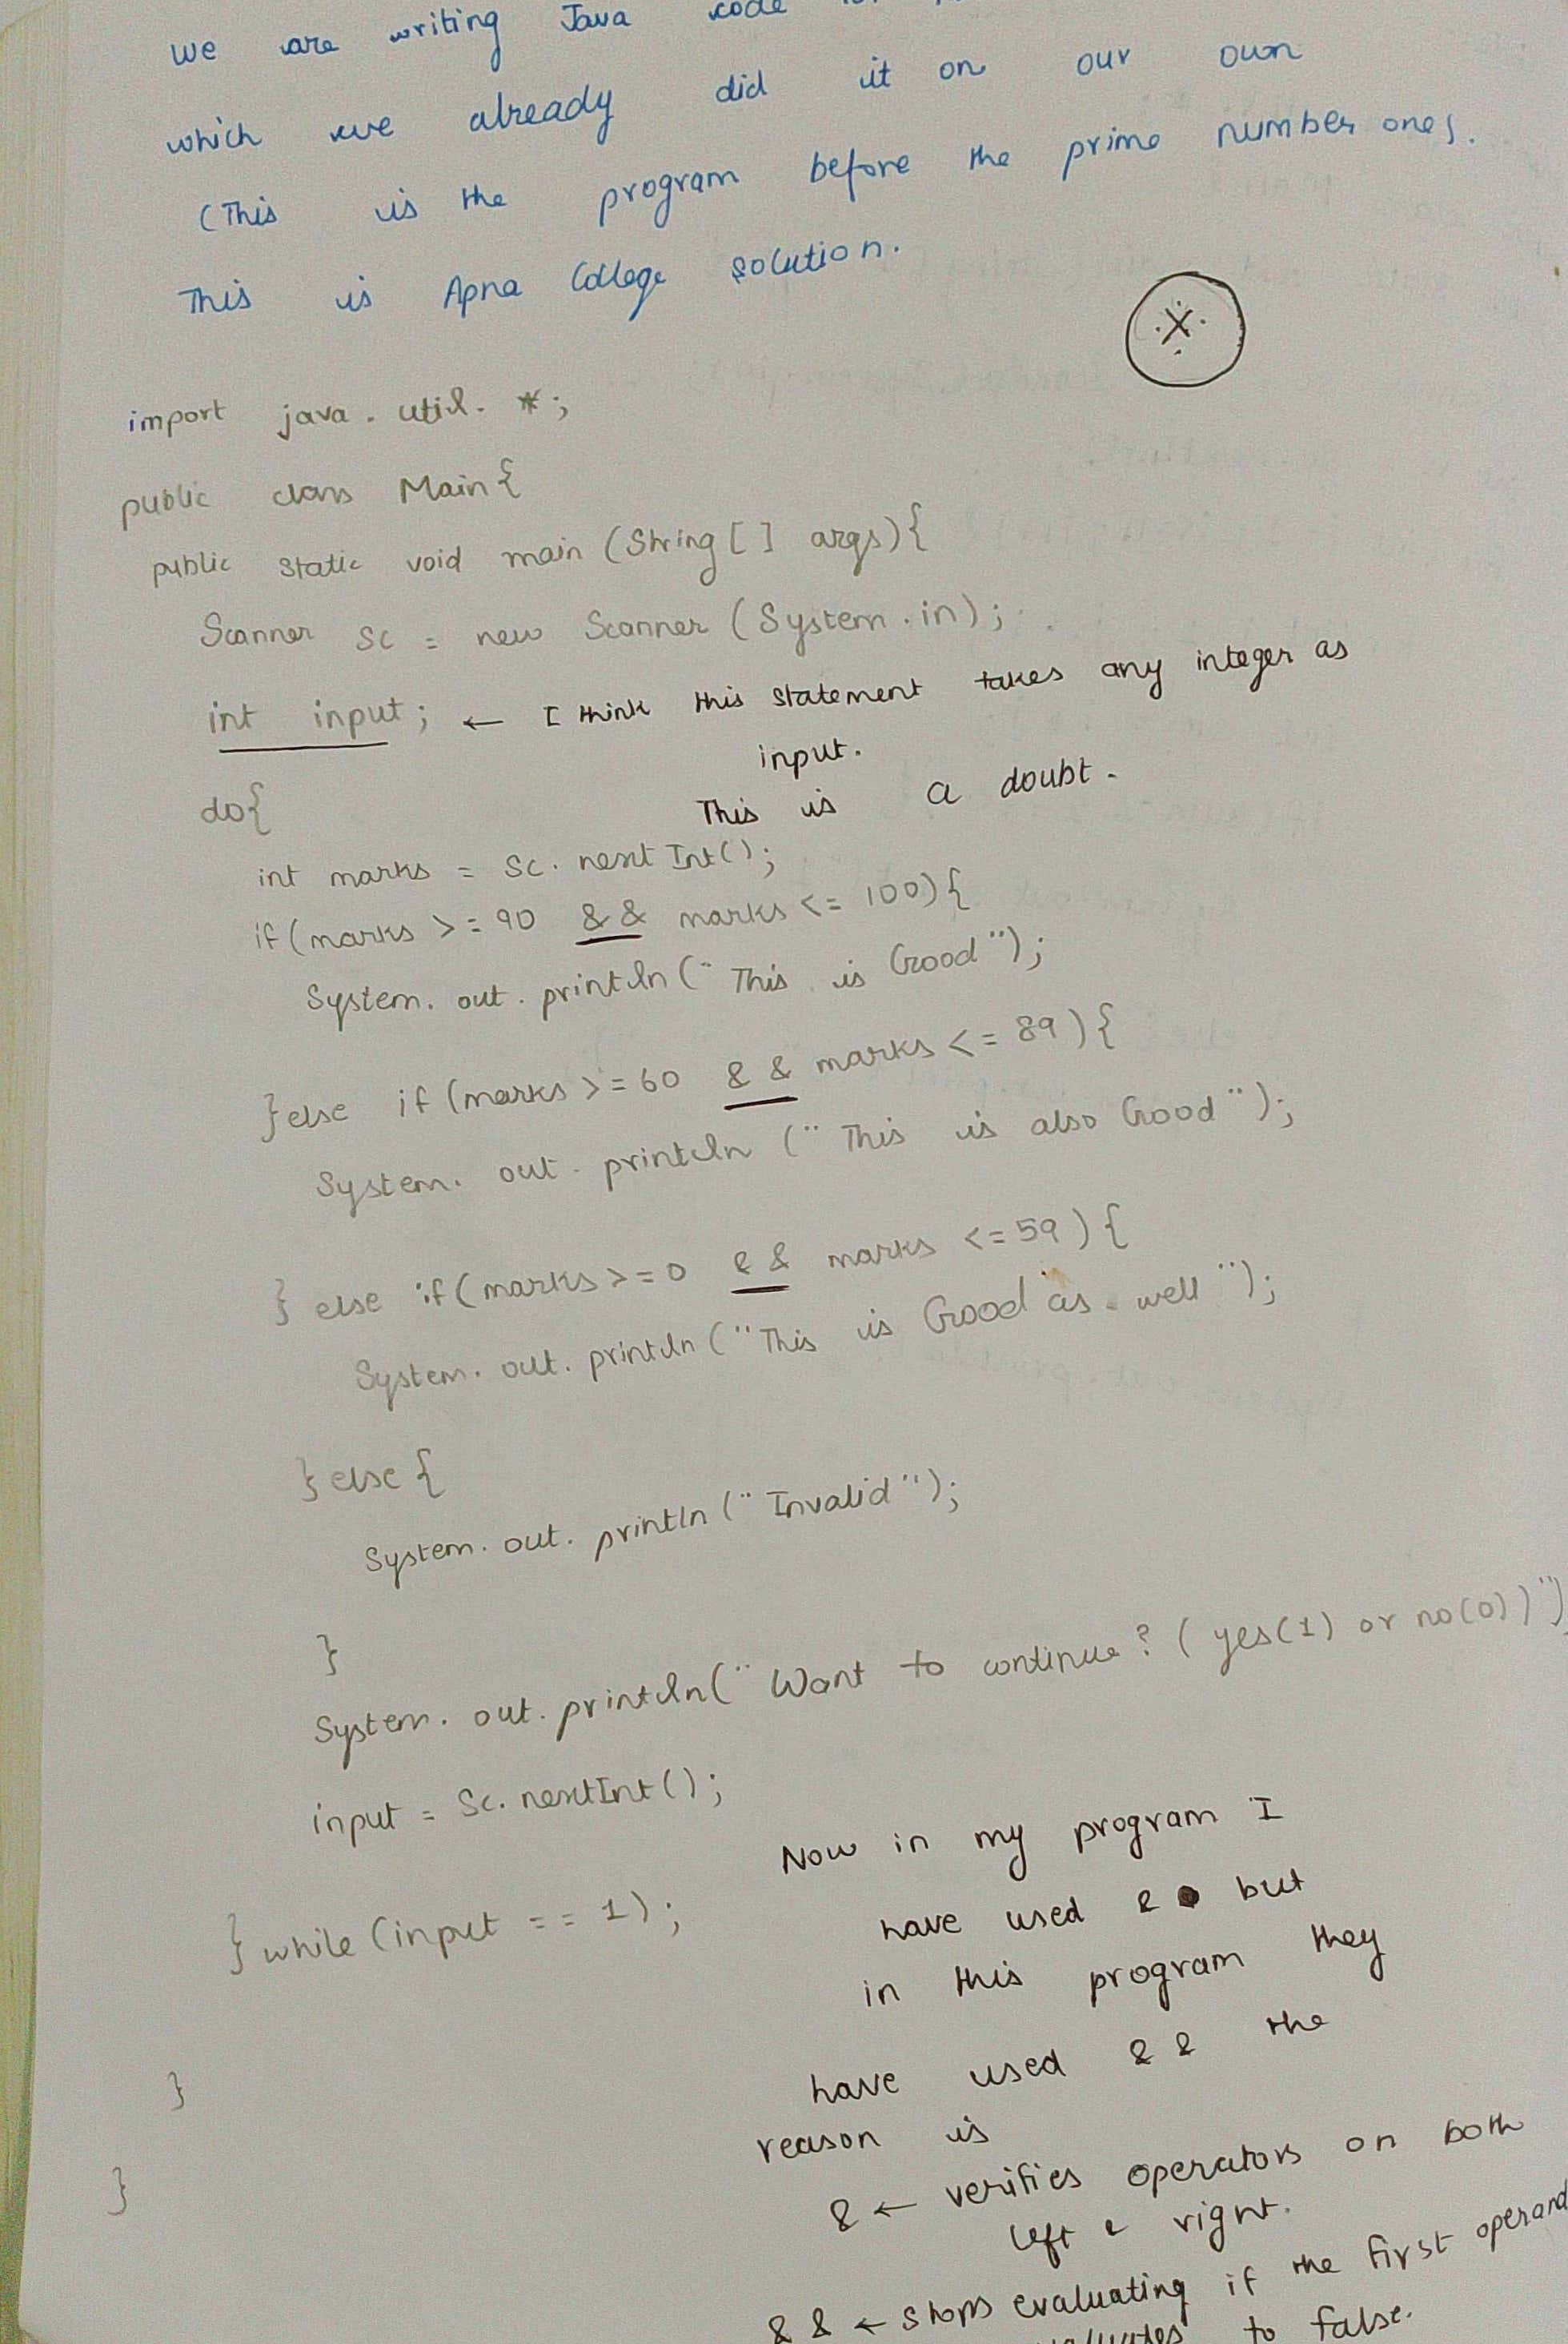 we are writing Java code
which we already did it on our own
(This is the program before the prime number ones.
This is Apna College solution.
import java.util.*;
public class Main{
public static void main (String[] args){
Scanner sc = new Scanner (System.in);
int input; ← I think this statement takes any integer as
input.
This is a doubt.
do{
int marks = sc.nextInt();
if(marks >= 90 && marks <= 100){
System.out.println("This is Good");
}else if (marks >= 60 && marks <= 89){
System.out.println ("This is also Good");
} else if(marks >= 0 && marks <= 59){
System.out.println("This is Good as well");
}else{
System.out.println("Invalid");
}
System.out.println("Want to continue? (yes(1) or no(0))")
input = sc.nextInt();
}while (input == 1);
Now in my program I
have used & but
in this program they
have used && the
reason is
& ← verifies operators on both
left & right.
&& ← stops evaluating if the first operand
to false.
}
}